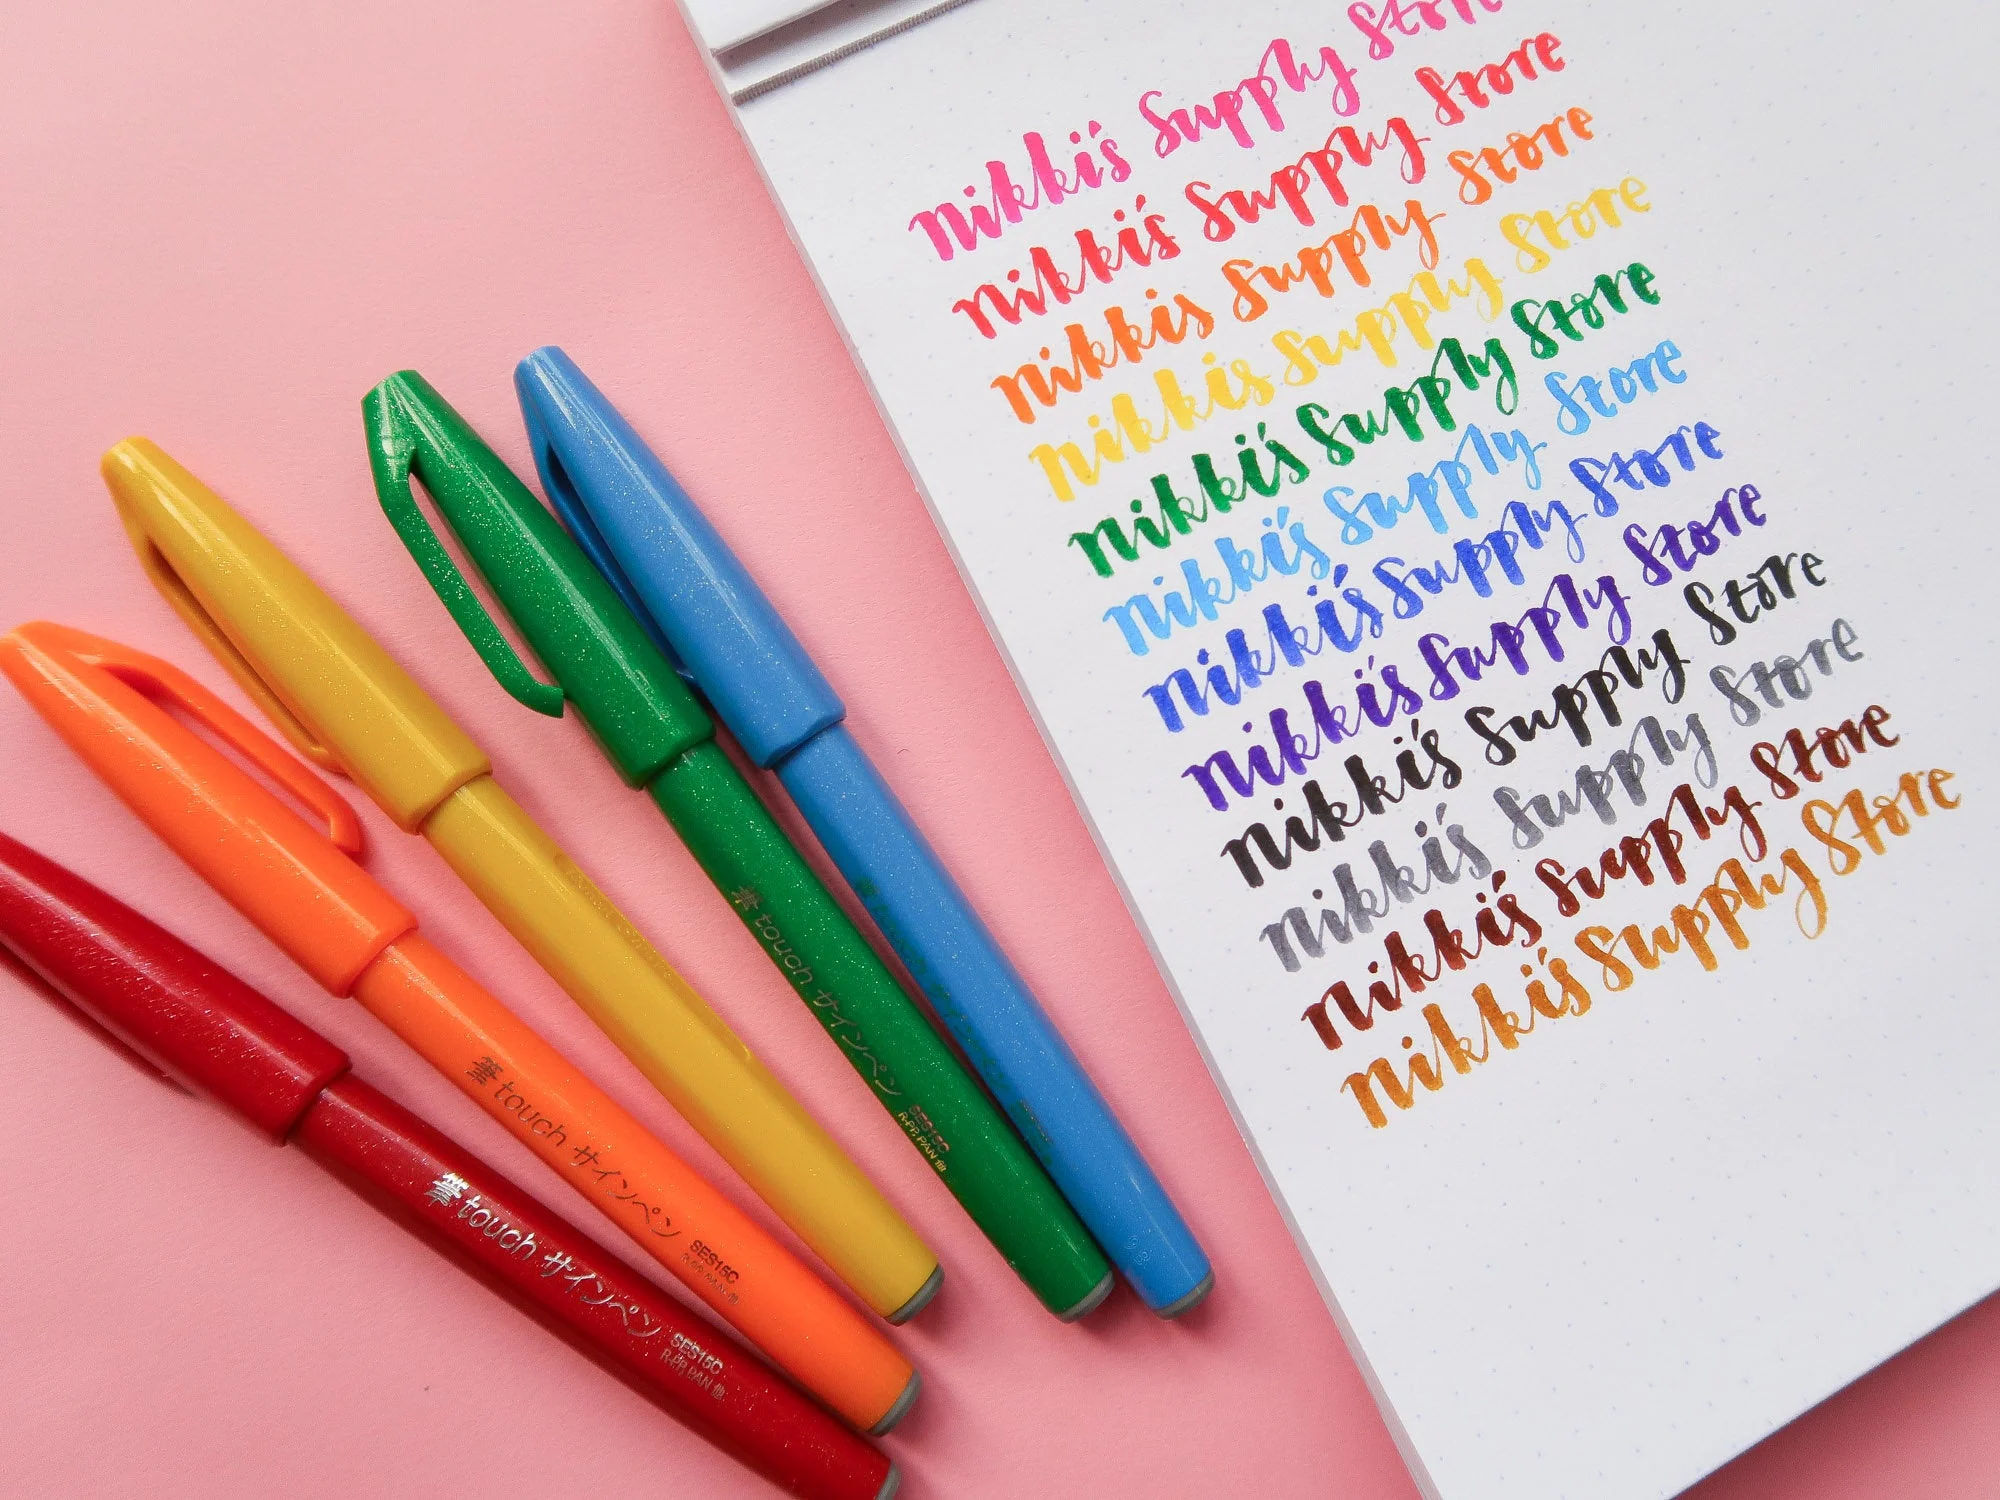 Nikki's Supply Store
Nikki's Supply Store
Nikkis Supply Store
Nikkis Supply Store
Nikki's Supply Store
Nikki's Supply Store
Nikki's Supply Store
Nikki's Supply Store
Nikki's Supply Store
Nikki's Supply Store
Nikki's Supply Store
Nikki's Supply Store
筆touch サインペン SES15C
R-PP, PAN 他
筆touch サインペン SES15C
R-PP, PAN 他
筆touch サインペン SES15C
R-PP, PAN 他